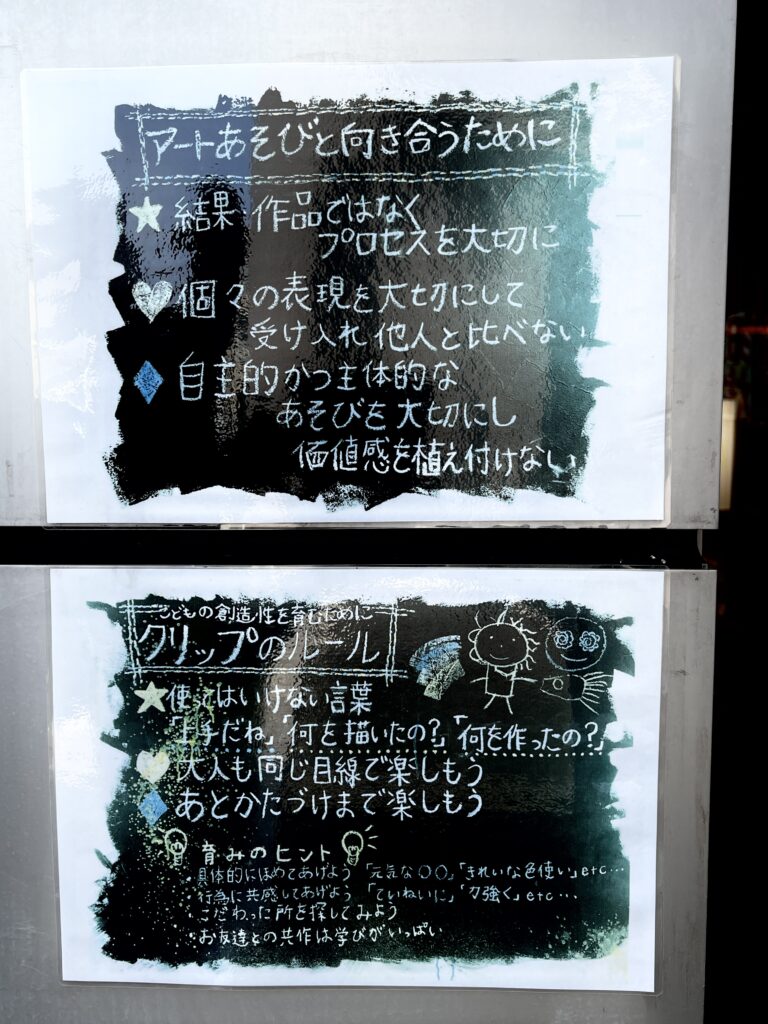 アートあそびと向き合うために
★結果 作品ではなく
プロセスを大切に
♥個々の表現を大切にして
受け入れ 他人と比べない
◆自主的かつ主体的な
あそびを大切にし
価値感を植え付けない
こどもの創造性を育むために
クリップのルール
★使ってはいけない言葉
「上手だね」「何を描いたの?」「何を作ったの?」
♥大人も同じ目線で楽しもう
◆あとかたづけまで楽しもう
育みのヒント
・具体的にほめてあげよう 「元気な〇〇」「きれいな色使い」etc…
・行為に共感してあげよう 「ていねいに」「力強く」etc…
・こだわった所を探してみよう
・お友達との共作は学びがいっぱい